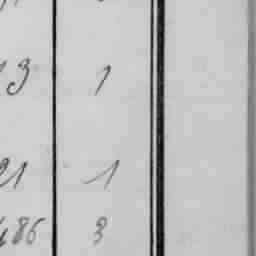 13 1
21 1
486 3